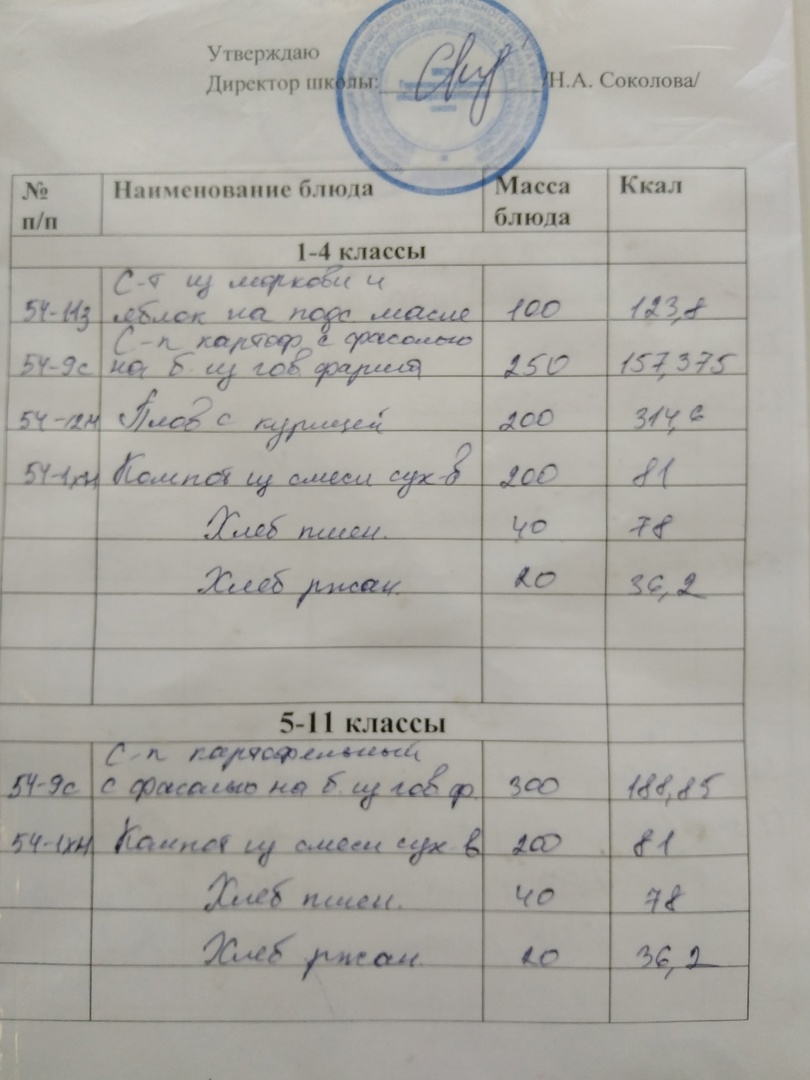 Утверждаю
Директор школы: /Н.А. Соколова/
№ п/п Наименование блюда Масса блюда Ккал
1-4 классы
С-т из моркови и
54-11з яблок на подс масле 100 123,8
С-п картоф. с фасолью
54-9с на б. из гов. фарша 250 157,375
54-12м Плов с курицей 200 314,6
54-1хн Компот из смеси сух-в 200 81
Хлеб пшен. 40 78
Хлеб ржан. 20 36,2
5-11 классы
С-п картофельный
54-9с с фасолью на б. из гов ф. 300 188,85
54-1хн Компот из смеси сух-в 200 81
Хлеб пшен. 40 78
Хлеб ржан. 20 36,2